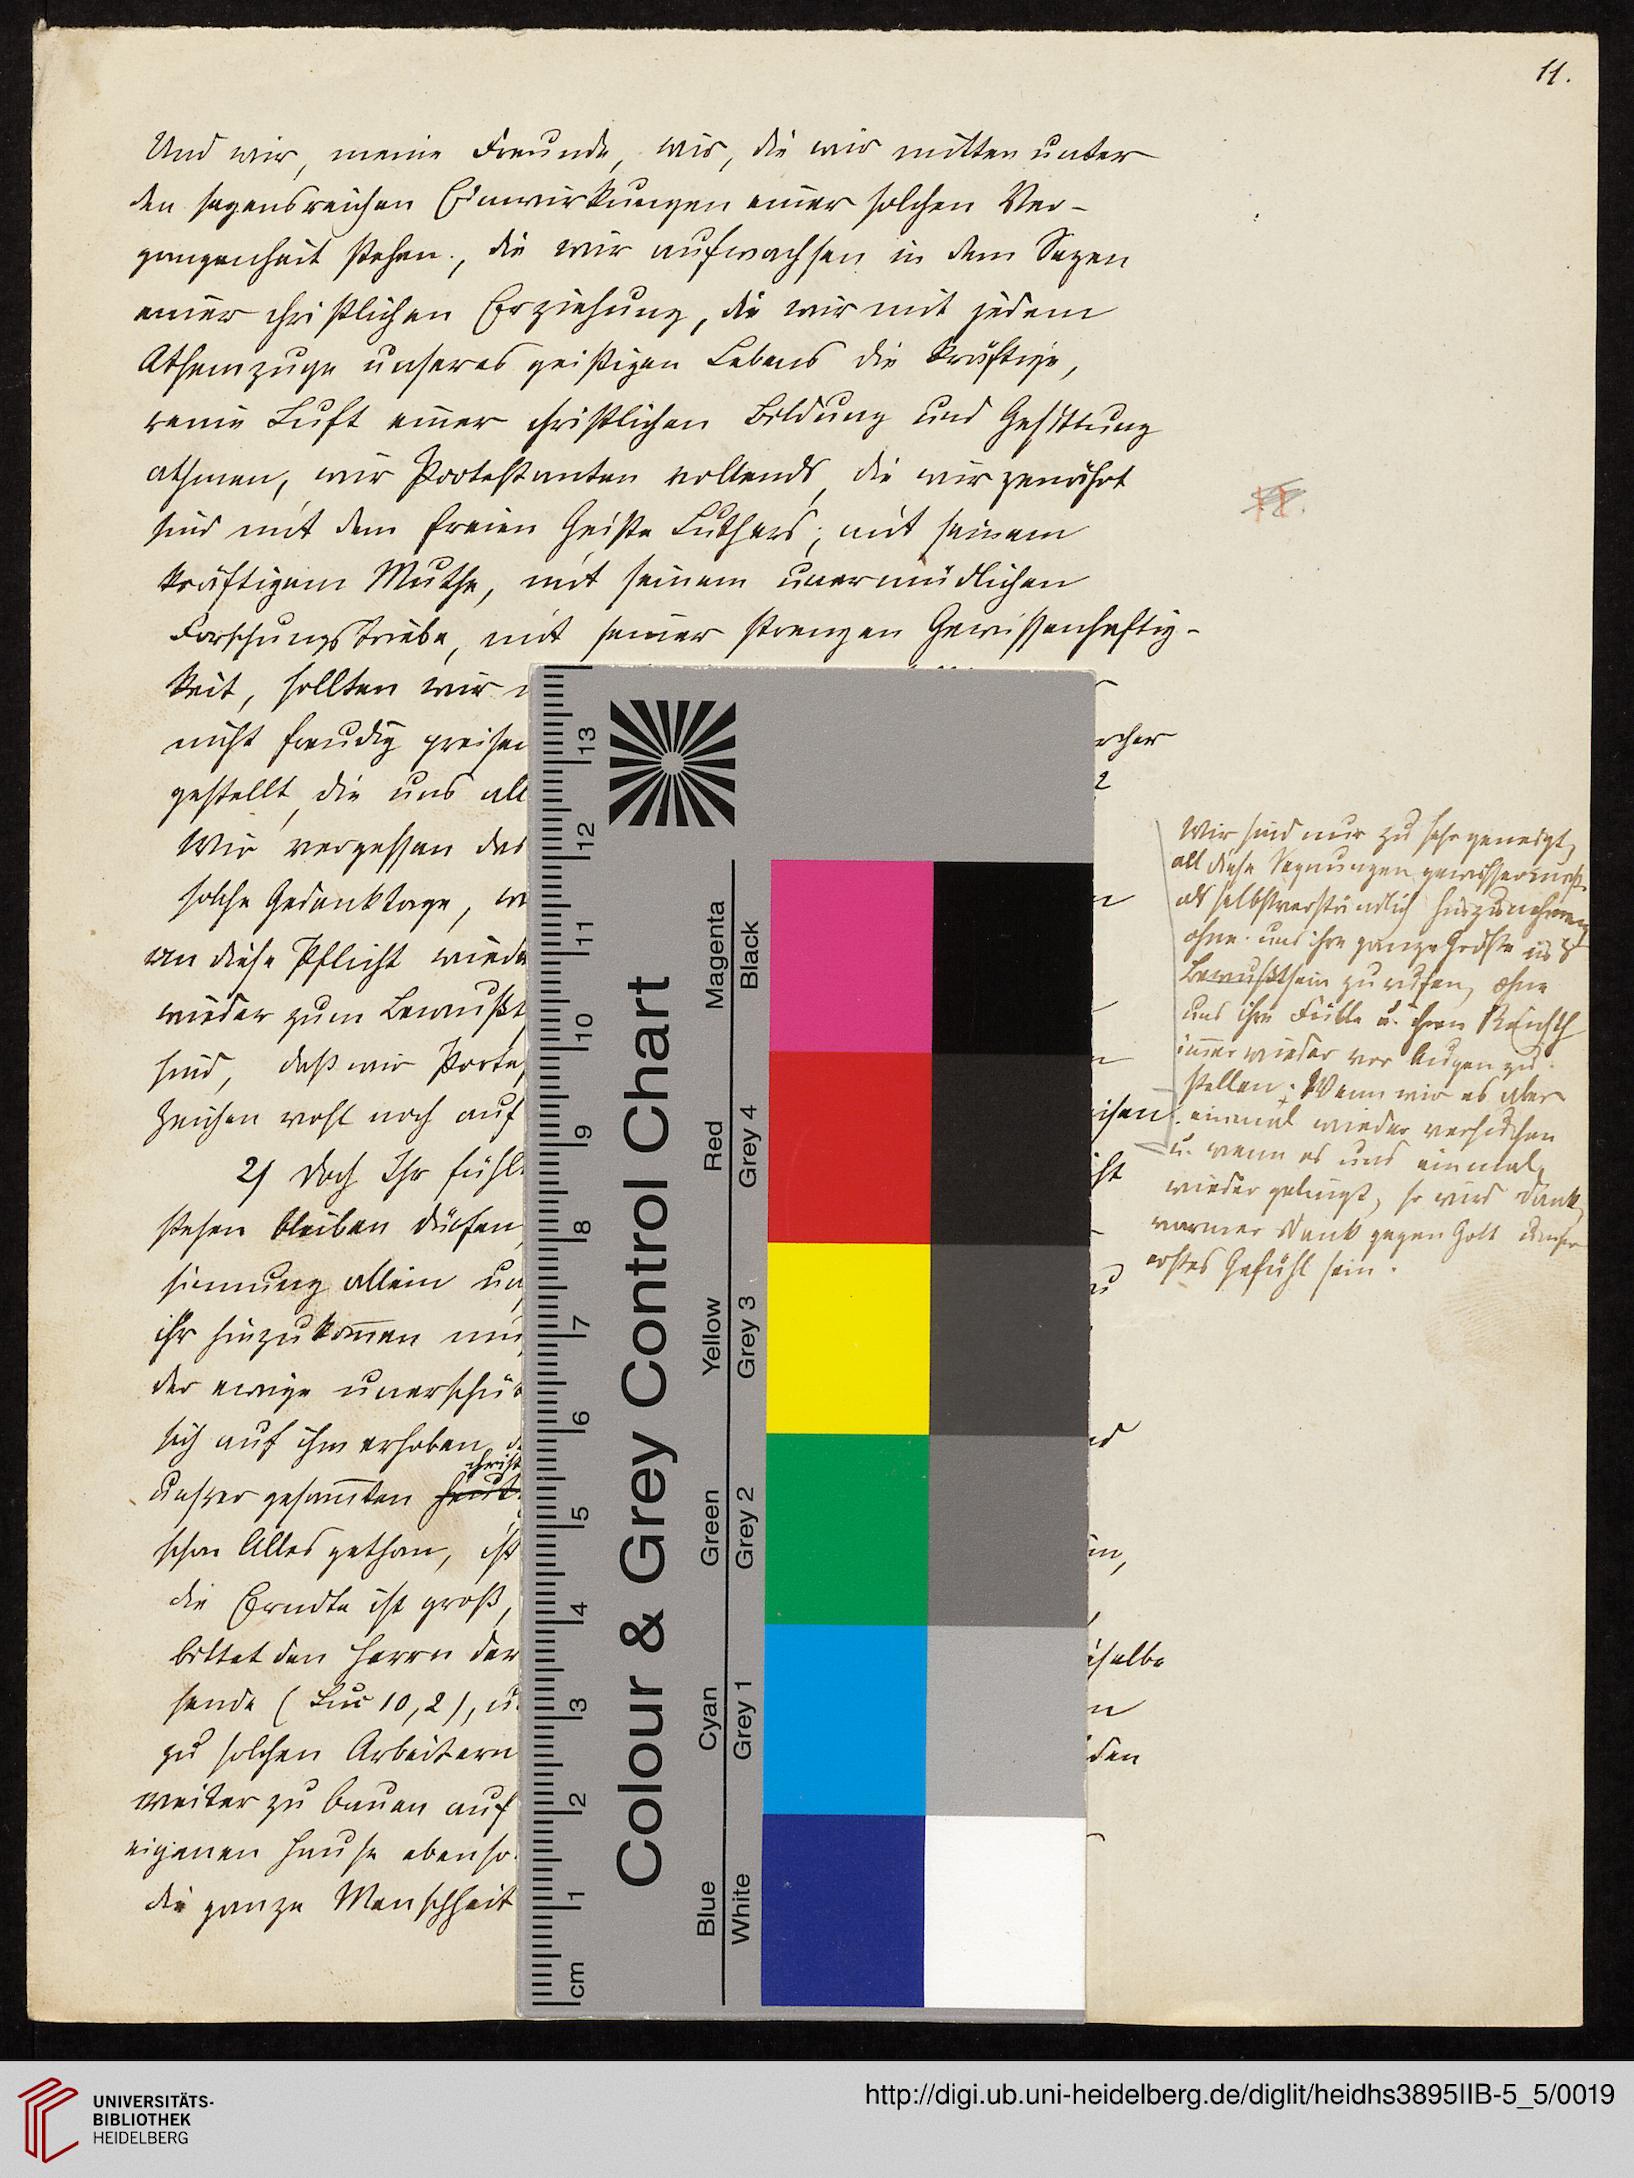 11.
Und wir, meine Freunde, wir, die wir mitten unter
den segensreichen Einwirkungen einer solchen Ver-
gangenheit stehen, die wir aufwachsen in dem Segen
einer christlichen Erziehung, die wir mit jedem
Athemzuge unseres geistigen Lebens die kräftige,
reine Luft einer christlichen Bildung und Gesittung
athmen, wir Protestanten vollends, die wir genährt
sind mit dem freien Geiste Luthers, mit seinem
kräftigem Muthe, mit seinem unermüdlichen
Forschungstriebe, mit seiner strengen Gewissenhaftig-
keit, sollten wir
nicht freudig preisen
gestellt, die uns all
Wir vergessen das
solche Gedenktage, w
an diese Pflicht wiede
wieder zum Bewußt
sind, daß wir Prote
Zeichen wohl noch auf
2) Doch Ihr fühl
stehen bleiben dürfen
sinnung allein un
ihr hinzukom̅en mu
der ewige unerschüt
sich auf ihm erhoben, d
christ
unsrer gesam̅ten heut
schon Alles gethan, ist
die Erndte ist groß,
bittet den Herrn der
sende (Luc 10,2), u.
zu solchen Arbeitern
weiter zu bauen auf
eigenen Hause ebenso
die ganze Menschheit
rcher
isen
cht
nd
in,
eselbe
den
Wir sind nur zu sehr geneigt,
all diese Segnungen gewissermaß.
als selbstverständlich hinzunehmen,
ohne uns ihre ganze Größe ins
Bewußtsein zu rufen, ohne
uns ihre Fülle u. ihren Reichth
im̅er wieder vor Augen zu
stellen. Wenn wir es aber
einmal wieder versuchen
u. wenn es uns einmal
wieder gelingt, so wird Dank,
warmer Dank gegen Gott unser
erstes Gefühl sein.
Colour & Grey Control Chart
Blue Cyan Green Yellow Red Magenta
White Grey 1 Grey 2 Grey 3 Grey 4 Black
cm 1 2 3 4 5 6 7 8 9 10 11 12 13
UNIVERSITÄTS-
BIBLIOTHEK
HEIDELBERG
http://digi.ub.uni-heidelberg.de/diglit/heidhs3895IIB-5_5/0019